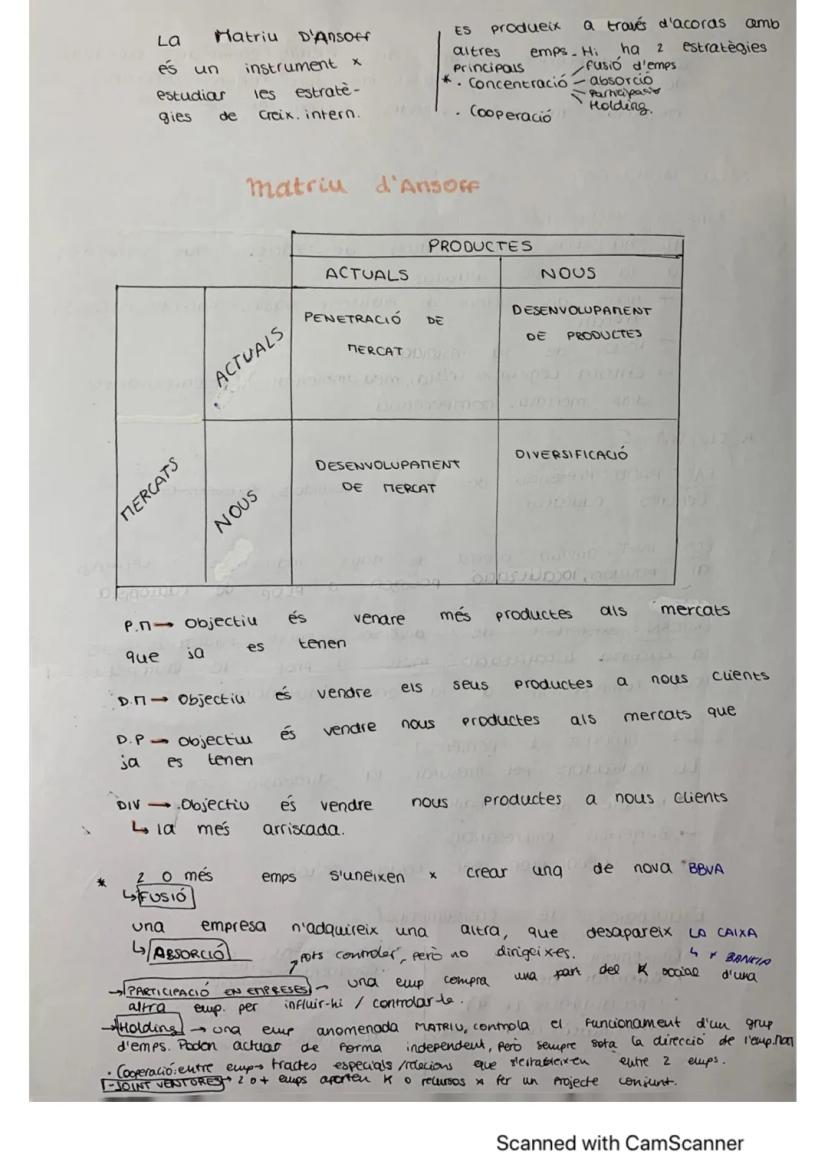 La Matriu D'Ansoff
és un instrument x
estudiar les estratè-
gies de creix. intern.
Es produeix a través d'acords amb
altres emps. Hi ha 2 estratègies
principals
fusió d'emps
* · Concentració - absorció
Participació
Holding.
· Cooperació
Matriu d'Ansoff
PRODUCTES
ACTUALS NOUS
MERCATS
ACTUALS
PENETRACIÓ DE
MERCAT
DESENVOLUPAMENT
DE PRODUCTES
NOUS
DESENVOLUPAMENT
DE MERCAT
DIVERSIFICACIÓ
P.M → Objectiu és vendre més productes als mercats
que ja es tenen
D.M → Objectiu és vendre els seus productes a nous clients
D.P → Objectiu és vendre nous productes als mercats que
ja es tenen
DIV → Objectiu és vendre nous productes a nous clients
↳ la més arriscada.
* 2 o més emps s'uneixen x crear una de nova BBVA
↳ FUSIÓ
una empresa n'adquireix una altra, que desapareix LA CAIXA
↳ x BANKIA
↳ ABSORCIÓ
pots controlar, però no dirigeixes.
→ PARTICIPACIÓ EN EMPRESES - una emp compra una part del K social d'una
altra emp. per influir-hi / controlar-la.
→ Holding → una emp anomenada MATRIU, controla el funcionament d'un grup
d'emps. Poden actuar de forma independent, però sempre sota la direcció de l'emp.
· Cooperació: entre emp → tractes especials / relacions que s'estableixen entre 2 emps.
- JOINT VENTURES → 2 o + emps aporten K o recursos x fer un projecte conjunt.
Scanned with CamScanner